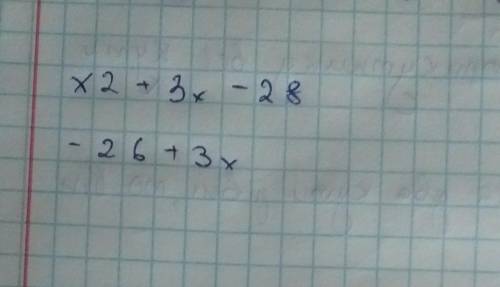 x2 + 3x - 28
- 26 + 3x